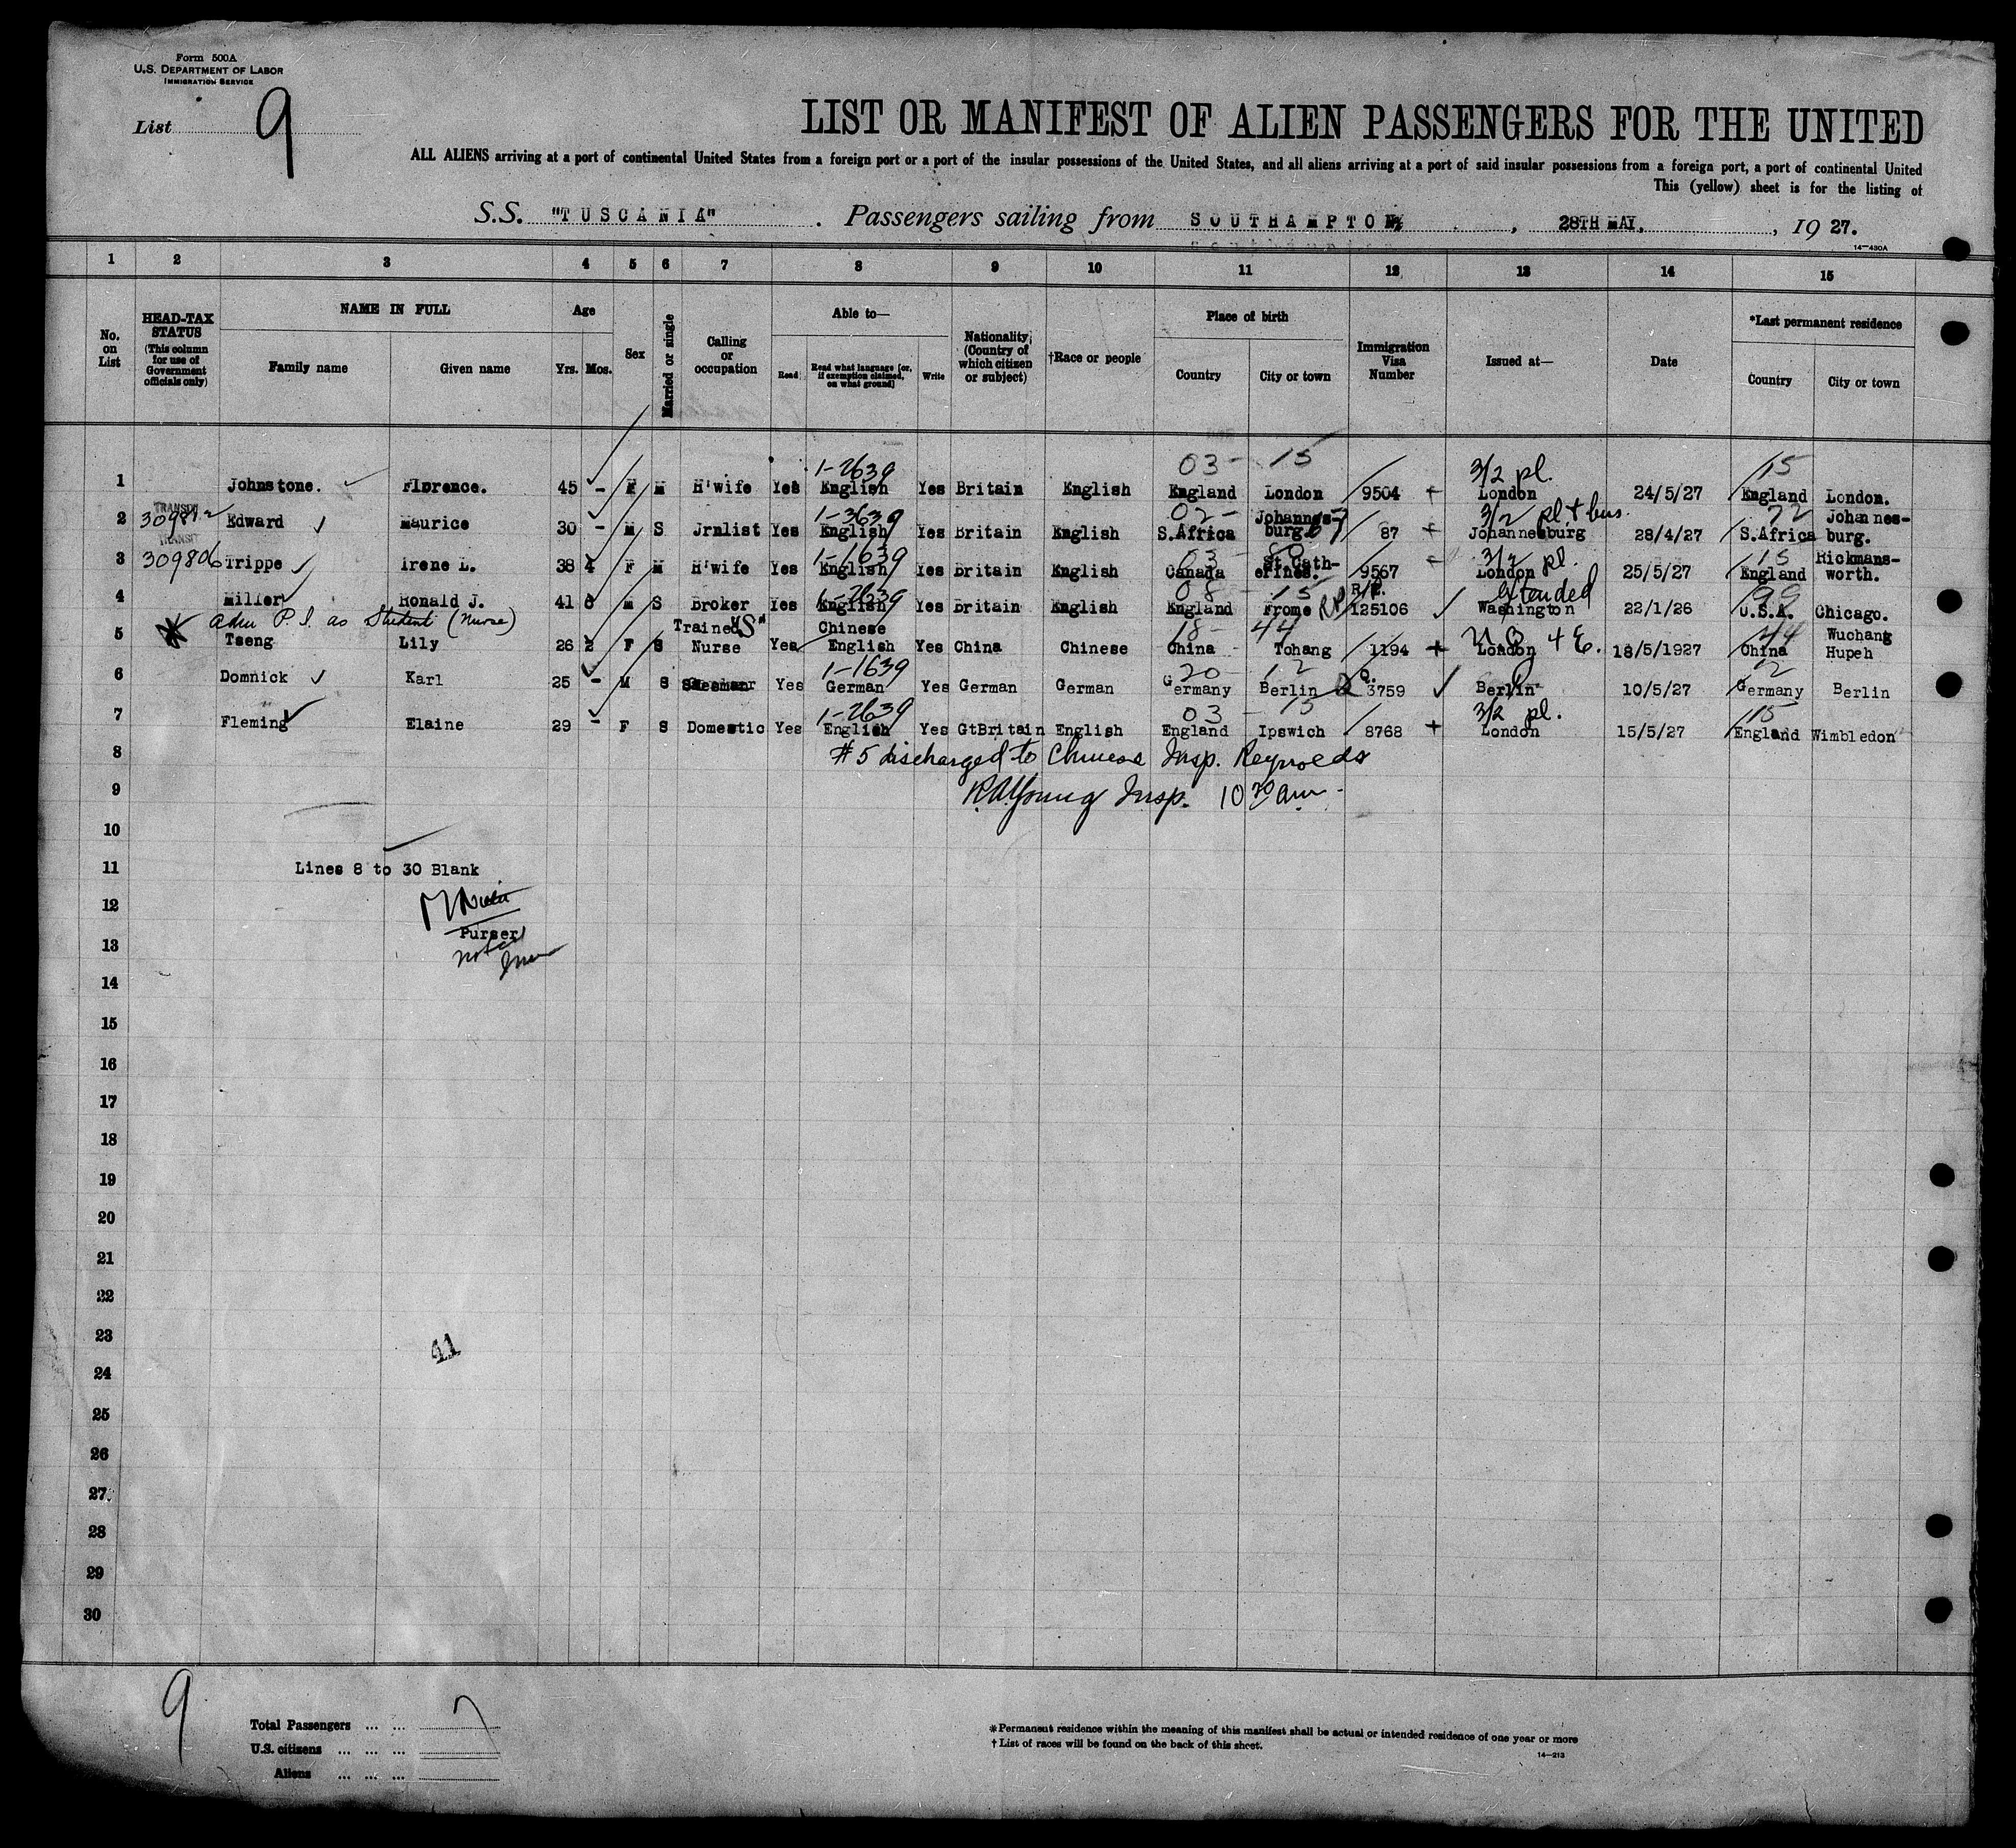 Form 500A
U.S. DEPARTMENT OF LABOR
IMMIGRATION SERVICE
List 9
LIST OR MANIFEST OF ALIEN PASSENGERS FOR THE UNITED
ALL ALIENS arriving at a port of continental United States from a foreign port or a port of the insular possessions of the United States, and all aliens arriving at a port of said insular possessions from a foreign port, a port of continental United
This (yellow) sheet is for the listing of
S.S. "TUSCANIA" . Passengers sailing from SOUTHAMPTON , 28TH MAY, , 19 27.
14—430A
1 2 3 4 5 6 7 8 9 10 11 12 13 14 15
No. on List
HEAD-TAX STATUS (This column for use of Government officials only)
NAME IN FULL
Family name Given name
Age
Yrs. Mos.
Sex
Married or single
Calling or occupation
Able to—
Read
Read what language [or, if exemption claimed, on what ground]
Write
Nationality, (Country of which citizen or subject)
†Race or people
Place of birth
Country City or town
Immigration Visa Number
Issued at—
Date
*Last permanent residence
Country City or town
1-2639 03- 15 3/2 pl. 15
1 Johnstone. Florence. 45 - F M H'wife Yes English Yes Britain English England London 9504 + London 24/5/27 England London.
TRANSIT 1-3639 02- 3/2 pl + bus. 72
2 Edward Maurice 30 - M S Jrnlist Yes English Yes Britain English S.Africa Johannes-burg. 87 + Johannesburg 28/4/27 S.Africa Johannes-burg.
TRANSIT 1-1639 03 - 3/2 pl. 15
3 309806 Trippe Irene L. 38 4 F M H'wife Yes English Yes Britain English Canada St.Cath-erines. 9567 London 25/5/27 England Rickmans-worth.
1-2639 08 - 15 R/P. extended 99
4 Miller Ronald J. 41 6 M S Broker Yes English Yes Britain English England Frome RP 125106 Washington 22/1/26 U.S.A. Chicago.
Adm P.S. as Student (Nurse) "S" 18- 44 44
5 Tseng Lily 26 2 F S Trained Nurse Yes Chinese English Yes China Chinese China Tohang 1194 + London 4 E. 18/5/1927 China Wuchang Hupeh
1-1639 20- 12 Q. 12
6 Domnick Karl 25 - M S Yes German Yes German German Germany Berlin 3759 Berlin 10/5/27 Germany Berlin
1-2639 03 - 15 3/2 pl. 15
7 Fleming Elaine 29 - F S Domestic Yes English Yes GtBritain English England Ipswich 8768 + London 15/5/27 England Wimbledon
8 #5 discharged to Chinese Insp. Reynolds
9 R.A. Young Insp. 10 30 am-
10
11 Lines 8 to 30 Blank
12
Purser
13
14
15
16
17
18
19
20
21
22
23 41
24
25
26
27
28
29
30
9
Total Passengers ... ... 7
U.S. citizens ... ... ...
Aliens ... ... ...
*Permanent residence within the meaning of this manifest shall be actual or intended residence of one year or more
†List of races will be found on the back of this sheet.
14—213